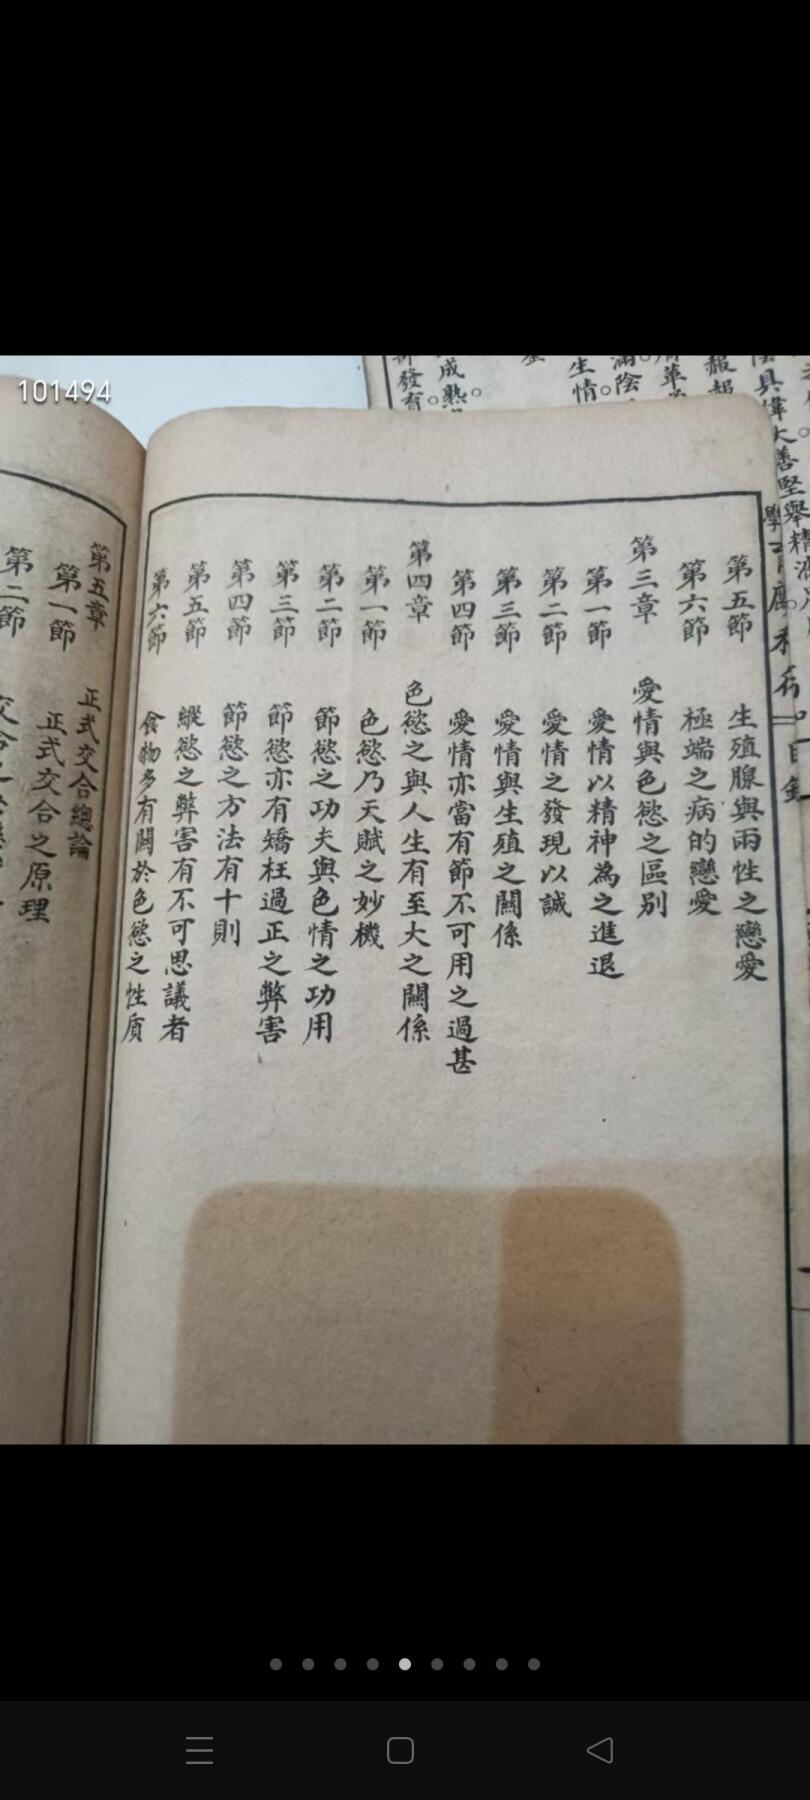 101494
第五節 生殖腺與兩性之戀愛
第六節 極端之病的戀愛
第三章 愛情與色慾之區別
第一節 愛情以精神為之進退
第二節 愛情之發現以誠
第三節 愛情與生殖之關係
第四節 愛情亦當有節不可用之過甚
第四章 色慾之與人生有至大之關係
第一節 色慾乃天賦之妙機
第二節 節慾之功夫與色情之功用
第三節 節慾亦有矯枉過正之弊害
第四節 節慾之方法有十則
第五節 縱慾之弊害有不可思議者
第六節 食物多有關於色慾之性质
第五章 正式交合總論
第一節 正式交合之原理
第二節